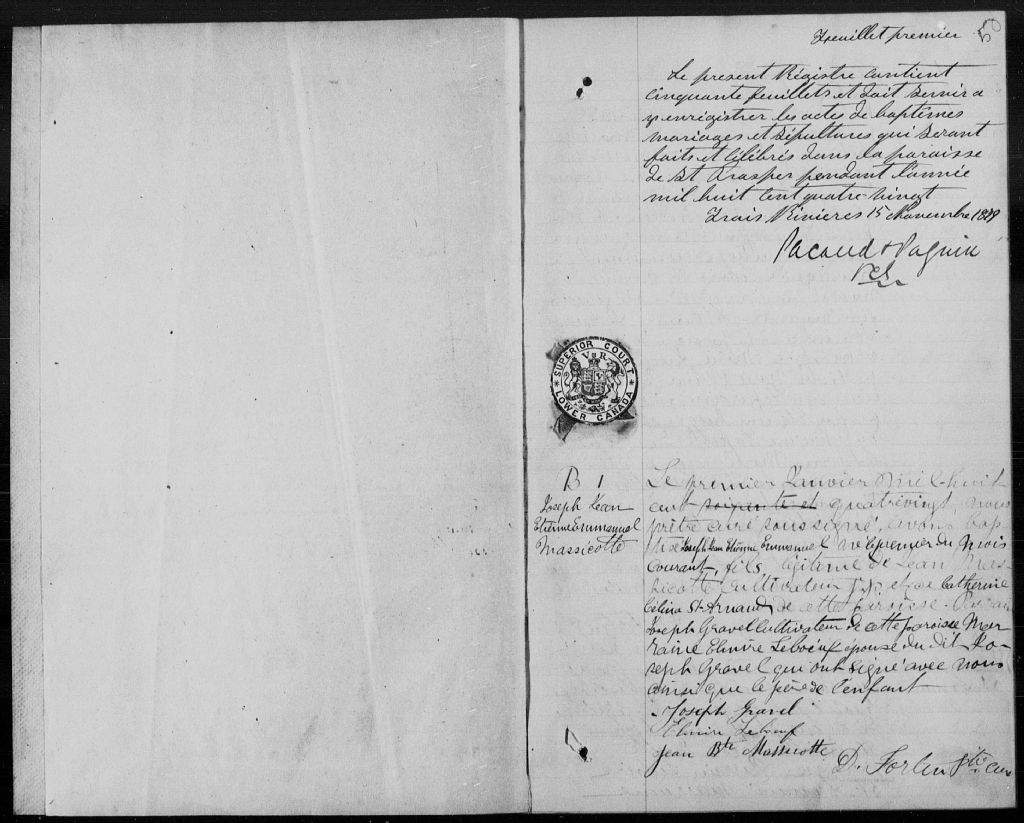 Feuillet premier
50
Le present Régistre contient
cinquante feuillets et doit servir a
y enrégistrer les actes de baptêmes
mariages et sépultures qui seront
faits et célébrés dans la paroisse
de St Prosper pendant l'année
mil huit cent quatre-vingt
Trois Rivières 15 Novembre 1879
Pacaud & Paquin
SUPERIOR COURT
V R
LOWER CANADA
B 1
Joseph Jean
Etienne Emmanuel
Massicotte
Le premier Janvier mil-huit
cent soixante et quatrevingt nous
prêtre curé soussigné, avons bap-
tisé Joseph Jean Etienne Emmanuel né le premier du mois
courant, fils légitime de Jean Mas-
sicotte cultivateur et de Catherine
Célina St-Arnaud de cette paroisse. Parrain
Joseph Gravel Cultivateur de cette paroisse Mar-
raine Elmire Leboeuf épouse du dit Jo-
seph Gravel qui ont signé avec nous
ainsi que le père de l'enfant
Joseph Gravel
Elmire Leboeuf
Jean Bte Massicotte
D. Fortin Ptre Curé